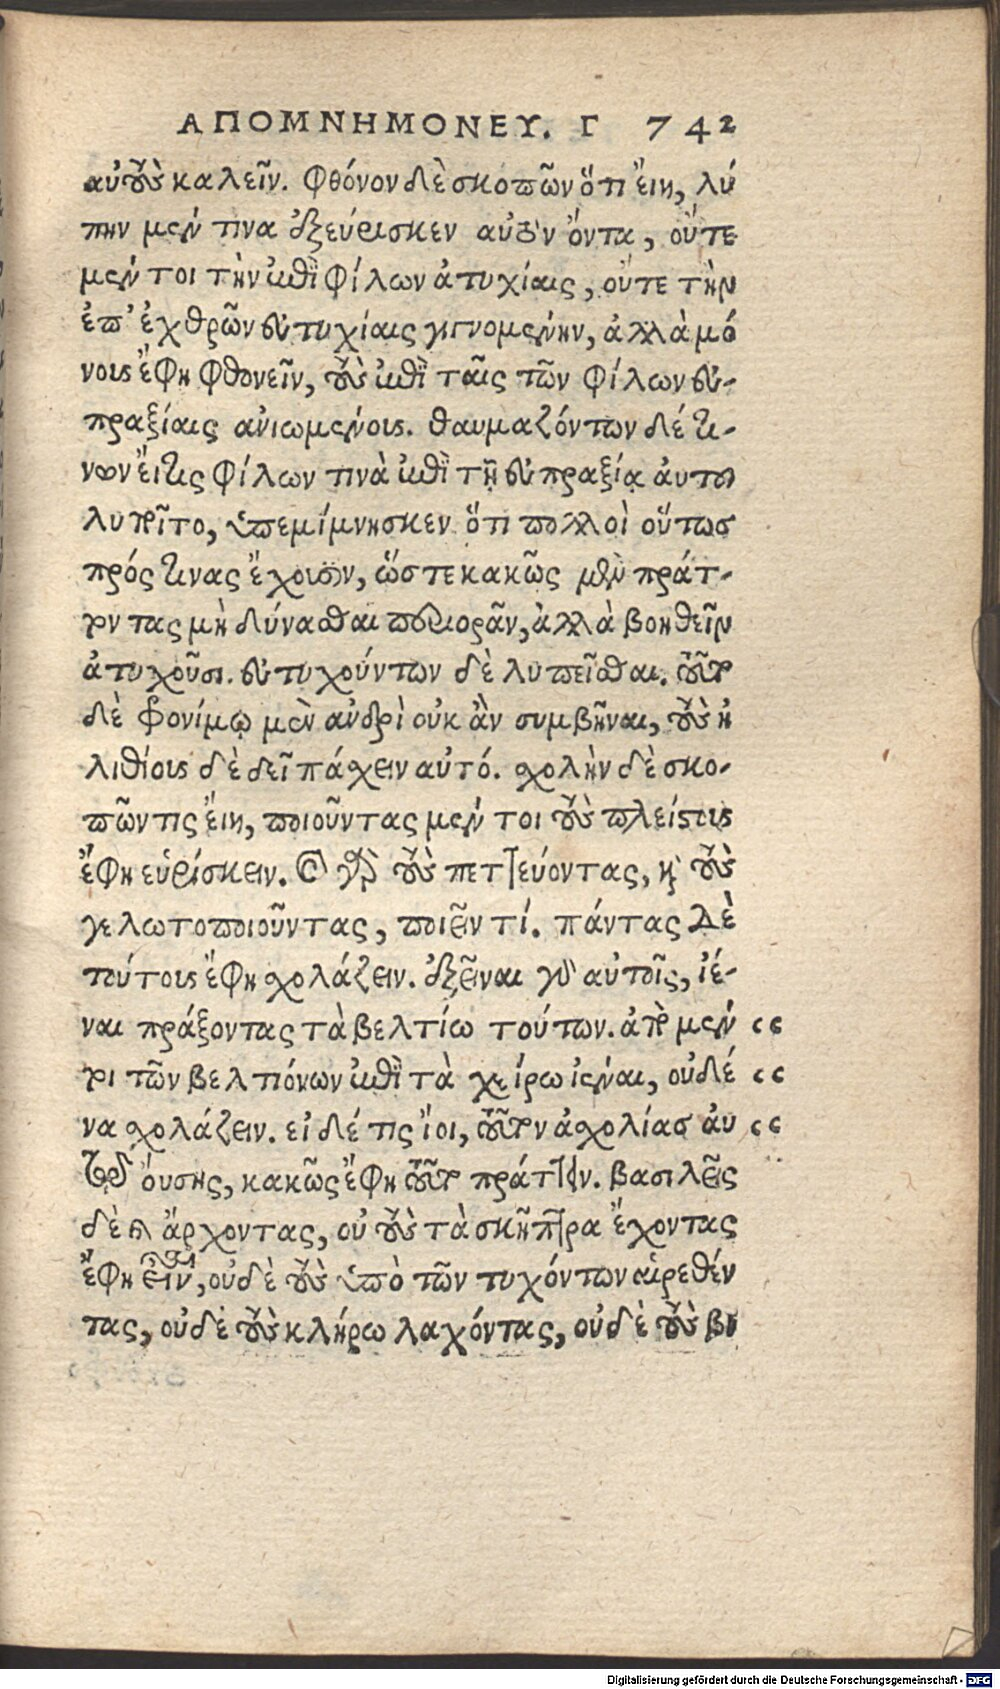 ΑΠΟΜΝΗΜΟΝΕΥ. Γ 742
αὐτοὺς καλεῖν. Φθόνον δὲ σκοπῶν ὅτι εἴη, λύ
πην μέν τινα ἐξεύρισκεν αὐτὸν ὄντα, οὔτε
μέν τοι τὴν ἐπὶ φίλων ἀτυχίαις, οὔτε τὴν
ἐπ' ἐχθρῶν εὐτυχίαις γιγνομένην, ἀλλὰ μό
νους ἔφη φθονεῖν, τοὺς ἐπὶ ταῖς τῶν φίλων εὐ-
πραξίαις ἀνιωμένους. θαυμαζόντων δέ τι-
νων εἴ τις φίλων τινὰ ἐπὶ τῇ εὐπραξίᾳ ἀυτου
λυποῖτο, ὑπεμίμνησκεν ὅτι πολλοὶ οὕτως
πρός τινας ἔχουσιν, ὥστε κακῶς μὲν πράτ-
τον τας μὴ δύνασθαι περιορᾶν, ἀλλὰ βοηθεῖν
ἀτυχοῦσι. εὐτυχούντων δὲ λυπεῖσθαι. τοῦτο
δὲ φρονίμῳ μὲν ἀνδρὶ οὐκ ἂν συμβῆναι, τοὺς ἠ
λιθίους δὲ δεῖ πάσχειν αὐτό. σχολὴν δὲ σκο-
πῶν τις εἴη, ποιοῦντας μέν τοι τοὺς πλείστους
ἔφη εὑρίσκειν. καὶ γὰρ τοὺς πεττεύοντας, καὶ τοὺς
γελωτοποιοῦντας, ποιεῖν τί. πάντας δὲ
τούτους ἔφη σχολάζειν. ἐξεῖναι γὰρ αὐτοῖς, ἰέ-
ναι πράξοντας τὰ βελτίω τούτων. ἀπὸ μέν ςς
τοι τῶν βελτιόνων ἐπὶ τὰ χείρω ἰέναι, οὐδέ ςς
να σχολάζειν. εἰ δέ τις ἴοι, τοῦτον ἀσχολίας αὐ ςς
τῷ όυσης, κακῶς ἔφη τοῦτο πράττειν. βασιλεῖς
δὲ καὶ ἄρχοντας, οὐ τοὺς τὰ σκῆπτρα ἔχοντας
ἔφη εἶναι, οὐδὲ τοὺς ὑπὸ τῶν τυχόντων αἱρεθέν
τας, οὐδὲ τοὺς κλήρω λαχόντας, οὐδὲ τοὺς βι
Digitalisierung gefördert durch die Deutsche Forschungsgemeinschaft - DFG